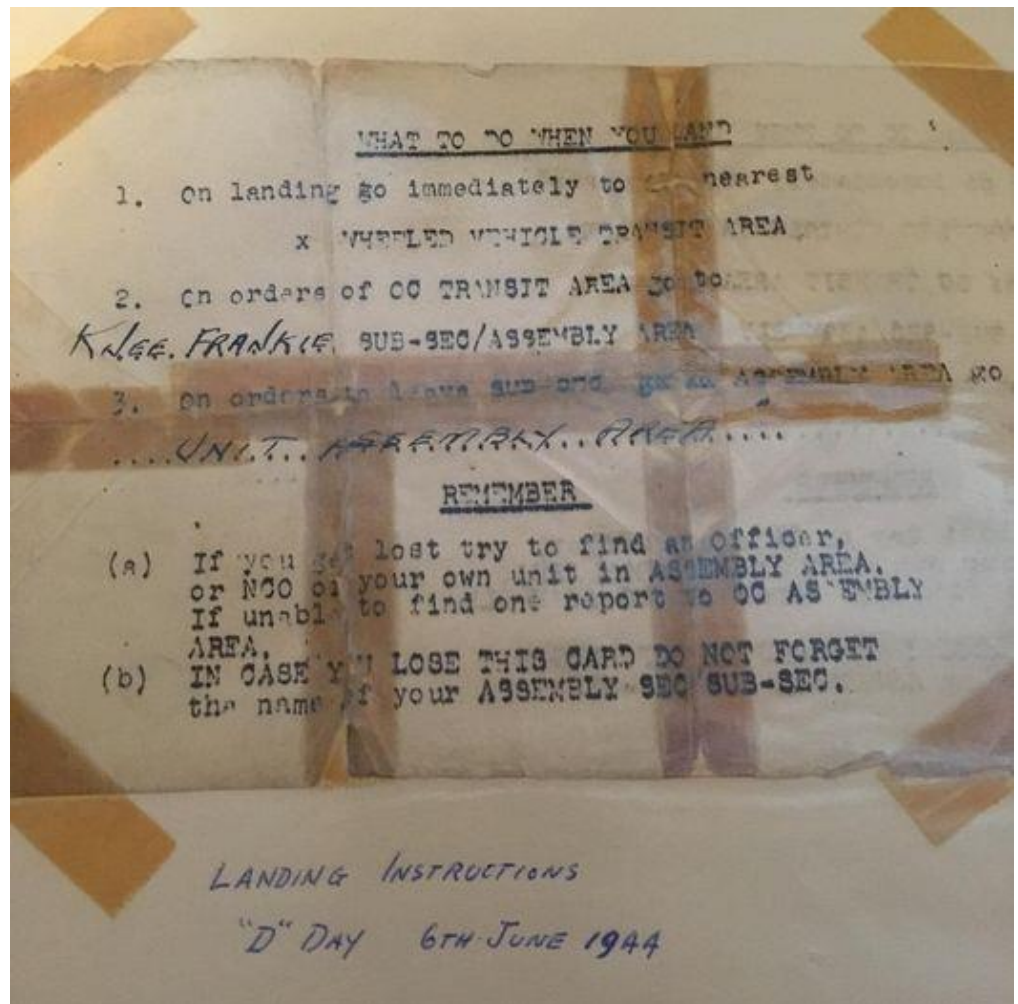 WHAT TO DO WHEN YOU LAND
1. On landing go immediately to nearest
x WHEELED VEHICLE TRANSIT AREA
2. On orders of OC TRANSIT AREA go to
KNEE. FRANKIE. SUB-SEC/ASSEMBLY AREA
3. On orders to leave ASSEMBLY AREA go
....UNIT..ASSEMBLY..AREA.....
REMEMBER
(a) If you get lost try to find an officer,
or NCO of your own unit in ASSEMBLY AREA.
If unable to find one report to OC ASSEMBLY
AREA.
(b) IN CASE YOU LOSE THIS CARD DO NOT FORGET
the name of your ASSEMBLY SEC/SUB-SEC.
LANDING INSTRUCTIONS
"D" DAY 6TH JUNE 1944